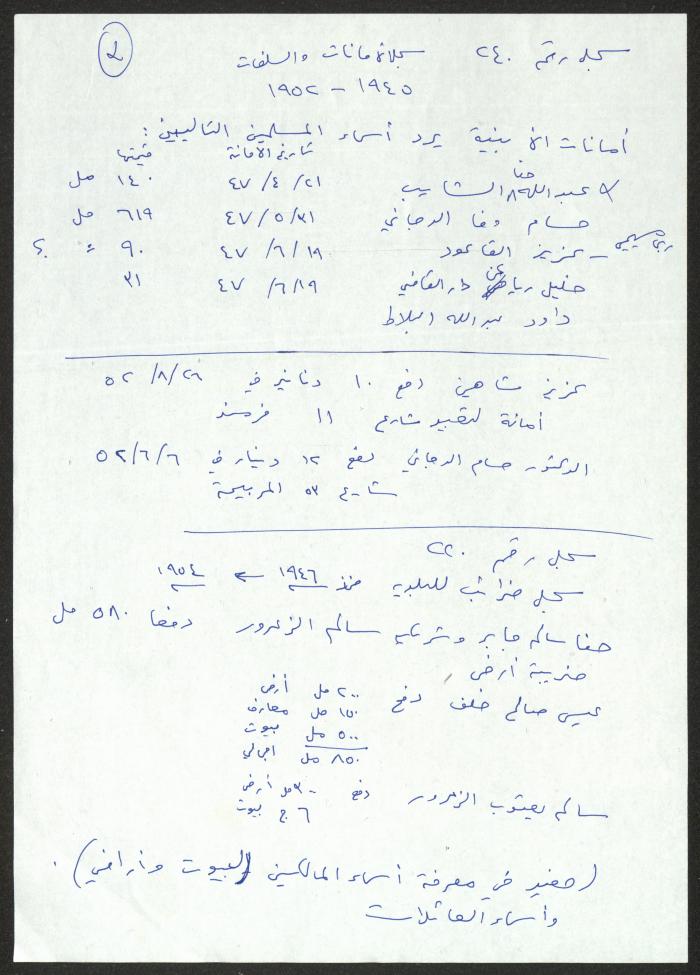 ٢
سجل رقم ٢٤٠ سجل الأمانات والسلفات
١٩٤٥ - ١٩٥٢
أمانات الأبنية يرد أسماء المسلمين التاليين:
تاريخ الأمانة قيمتها
عبدالله حنا الشايب ٢١/٤/٤٧ ١٤٠ مل
حسام وفا الدجاني ٣١/٥/٤٧ ٦١٩ مل
عزيز القاعود ١٩/٦/٤٧ ٩٠ = ؟
خليل رياض عن دار القاضي ١٩/٦/٤٧ ٣١
داود عبدالله البلاط
عزيز شاهين دفع ١٠ دنانير في ٢٦/٨/٥٢
أمانة لتعبيد شارع ١١
الدكتور حسام الدجاني دفع ١٢ دينار في ٦/٦/٥٢
شارع ٥٣
سجل رقم ٢٢٠
سجل ضرائب للبلدية منذ ١٩٤٦ ← ١٩٥٤
حنا سالم جابر وشركاه سالم الزعرور دفعا ٥٨٠ مل
ضريبة أرض
عيسى صالح خلف دفع ٢٠٠ مل أرض
١٥٠ مل معارف
٥٠٠ مل بيوت
٨٥٠ مل اجمالي
سالم يعقوب الزعرور دفع ٣٠ مل أرض
٦ ج بيوت
(مفيد في معرفة أسماء المالكين للبيوت وأراضي).
وأسماء العائلات